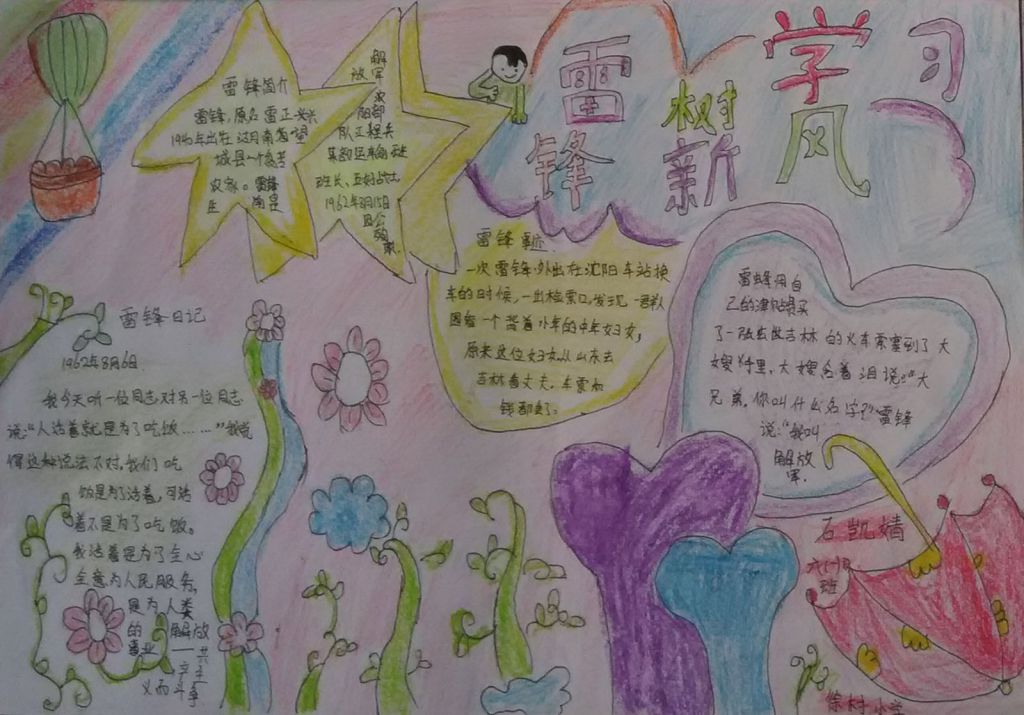 学习
雷锋
树新风
雷锋简介
雷锋,原名雷正兴
1940年出生在
城县一个贫苦
农家。雷锋
生前是
解放军
沈阳部
队工程兵
某部运输连
班长、五好战士
1962年8月15日
因公
殉职
雷锋事迹
一次雷锋外出在沈阳车站换
车的时候,一出检票口,发现一群人
围着一个背着小孩的中年妇女,
原来这位妇女从山东去
吉林看丈夫,车票和
钱都丢了。
雷锋用自
己的津贴费买
了一张去吉林的火车票塞到了大
嫂手里,大嫂含着泪说:“大
兄弟,你叫什么名字?”雷锋
说:“我叫
解放
军.
雷锋日记
1962年3月6日
我今天听一位同志对另一位同志
说:“人活着就是为了吃饭……”我觉
得这种说法不对,我们吃
饭是为了活着,可活
着不是为了吃饭。
我活着是为了全心
全意为人民服务,
是为人类
的解放
事业——共
产主
义而斗争
石凯婧
班
徐村小学